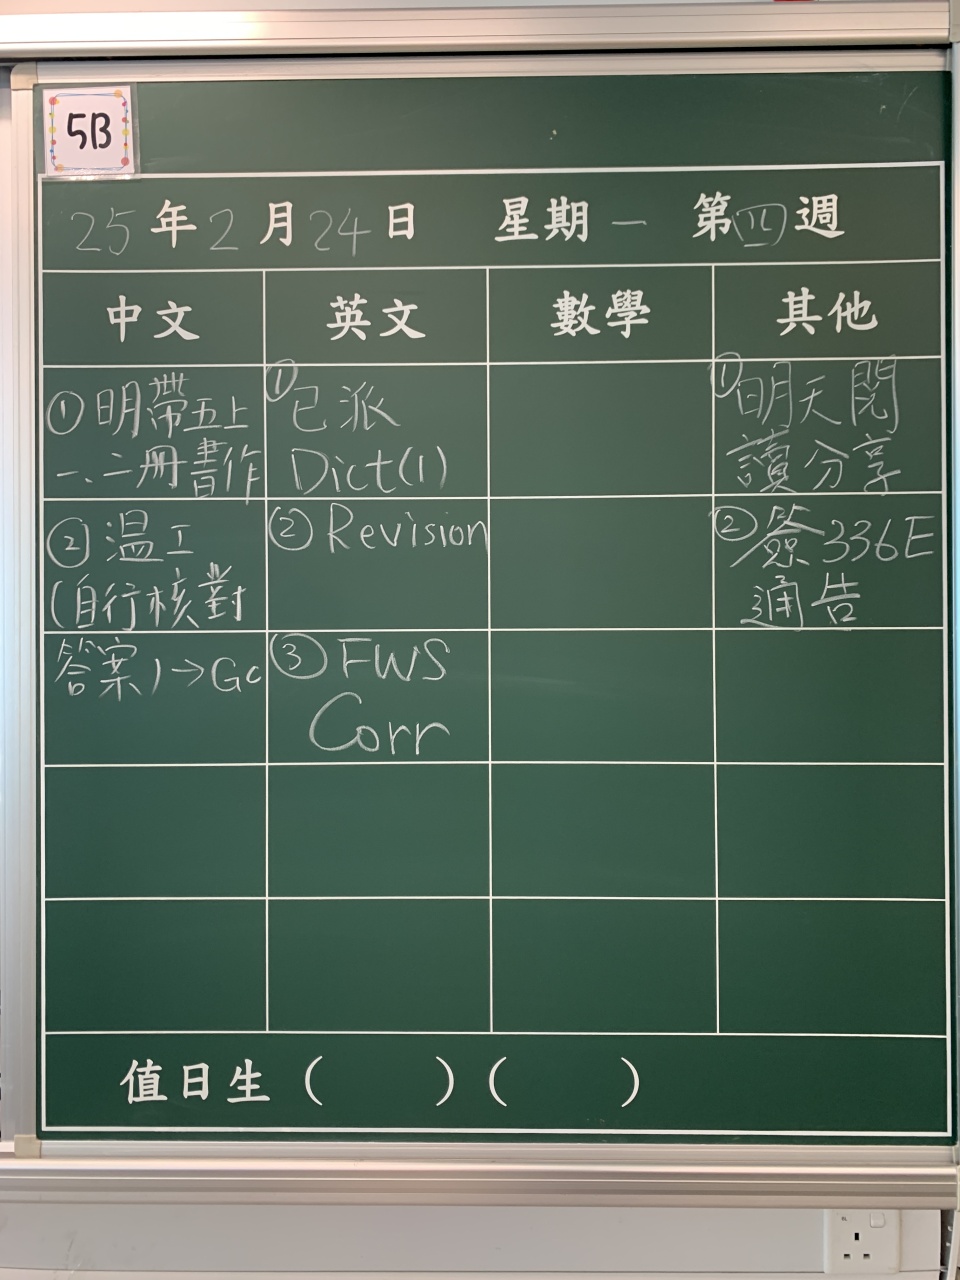 5B
25年2月24日 星期一 第四週
中文 英文 數學 其他
①明帶五上
一、二冊書作
②温工
(自行核對
答案)→Gc
①已派
Dict(1)
②Revision
③FWS
Corr
①明天閱
讀分享
②簽336E
通告
值日生( )( )